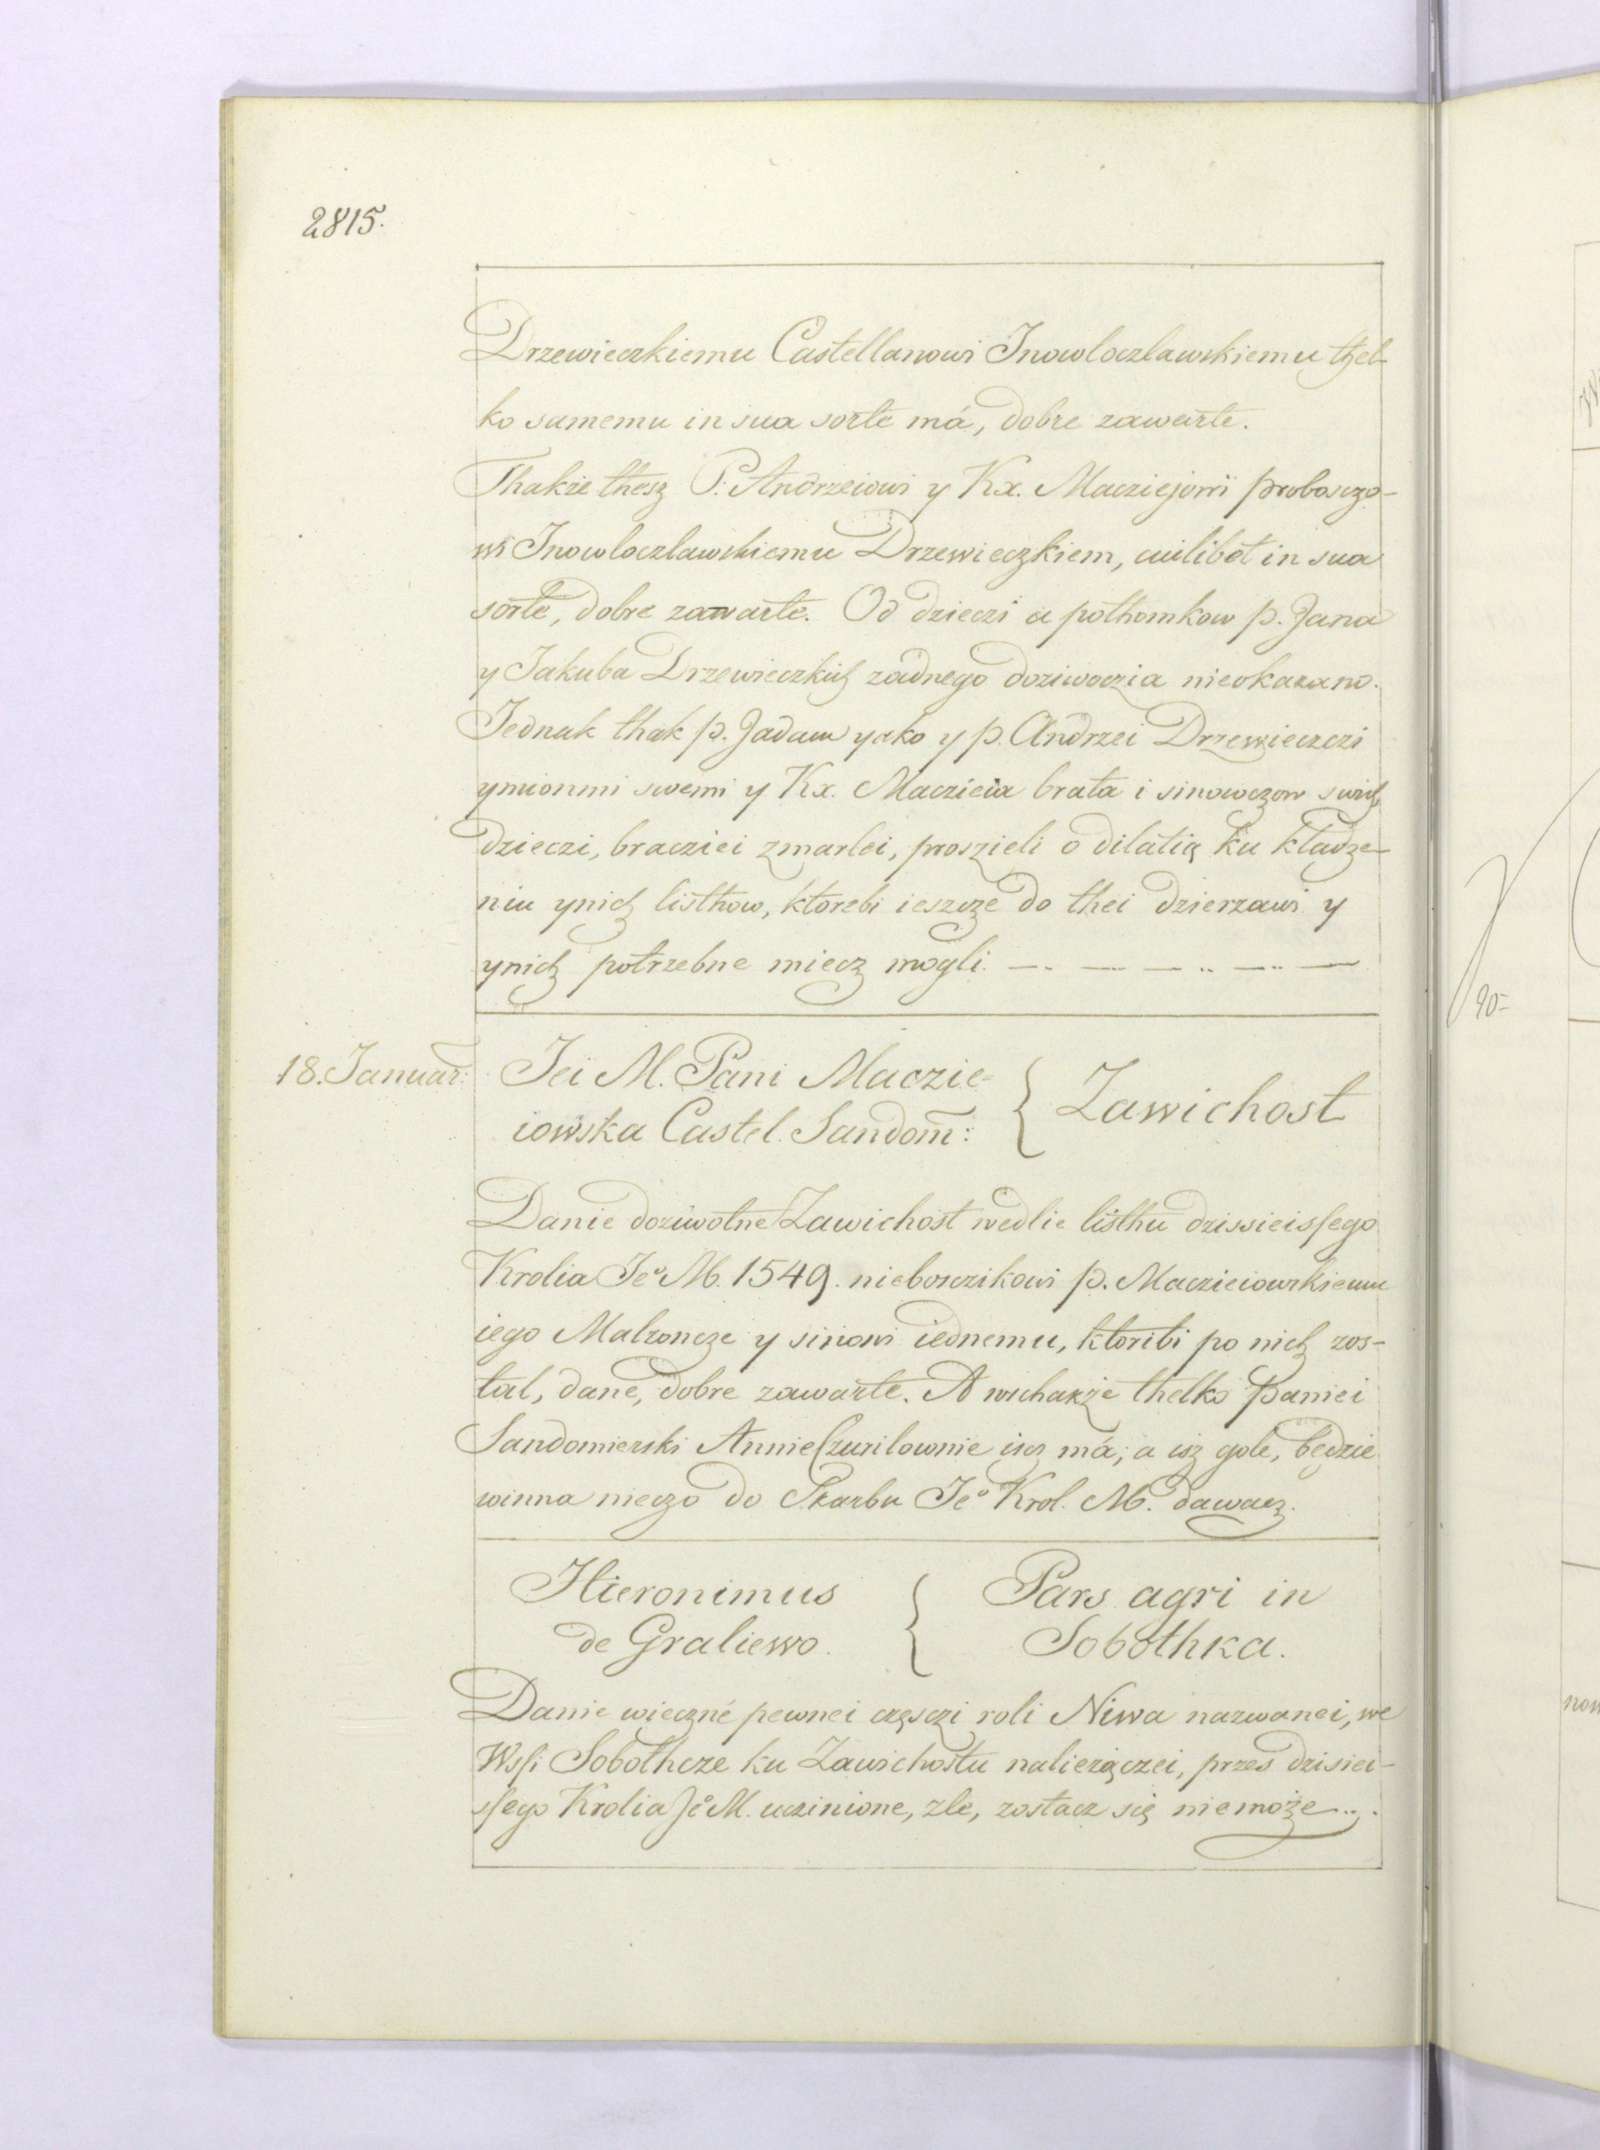 2815.
Drzewieczkiemu Castellanowi Inowloczlawskiemu thel-
ko samemu in sua sorte má, dobre zawarte.
Thakże thesz P. Andrzeiowi y Kx. Macziejowi proboszczo-
wi Inowloczlawskiemu Drzewieczkiem, cuilibet in sua
sorte, dobre zawarte. Od dzieczi a pothomkow p. Jana
y Jakuba Drzewieczkich zadnego doziwoczia nieokazano.
Jednak thak p. Jadam yako y p. Andrzei Drzewieczczi
ymionmi swemi y Kx. Maczieia brata i sinowczow swich
dzieczi, bracziei zmarlei, proszieli o dilatię ku kładze-
niu ynich listhow, ktorebi ieszcze do thei dzierzawi y
ynich potrzebne miecz mogli.
18. Januar:
Jei M. Pani Maczie-
iowska Castel. Sandom:
Zawichost
Danie doziwotne Zawichost wedlie listhu dzissieissego
Krolia Jeo M. 1549. nieboszczikowi p. Macziciowskiemu
iego Malzoncze y sinowi iednemu, ktoribi po nich zos-
tal, dane, dobre zawarte. A wschakże thelko paniei
Sandomierski Annie Czurilownie isz má; a isz gole, będzie
winna nieczo do Skarbu Jeo Krol. M. dawacz.
Hieronimus
de Graliewo.
Pars agri in
Sobothka.
Danie wieczné pewnei częsczi roli Niwa nazwanei, we
Wsi Sobothcze ku Zawichostu należączei, przes dzisiei-
ssego Krolia Jeo M. uczinione, zle, zostacz się niemoże.
90-